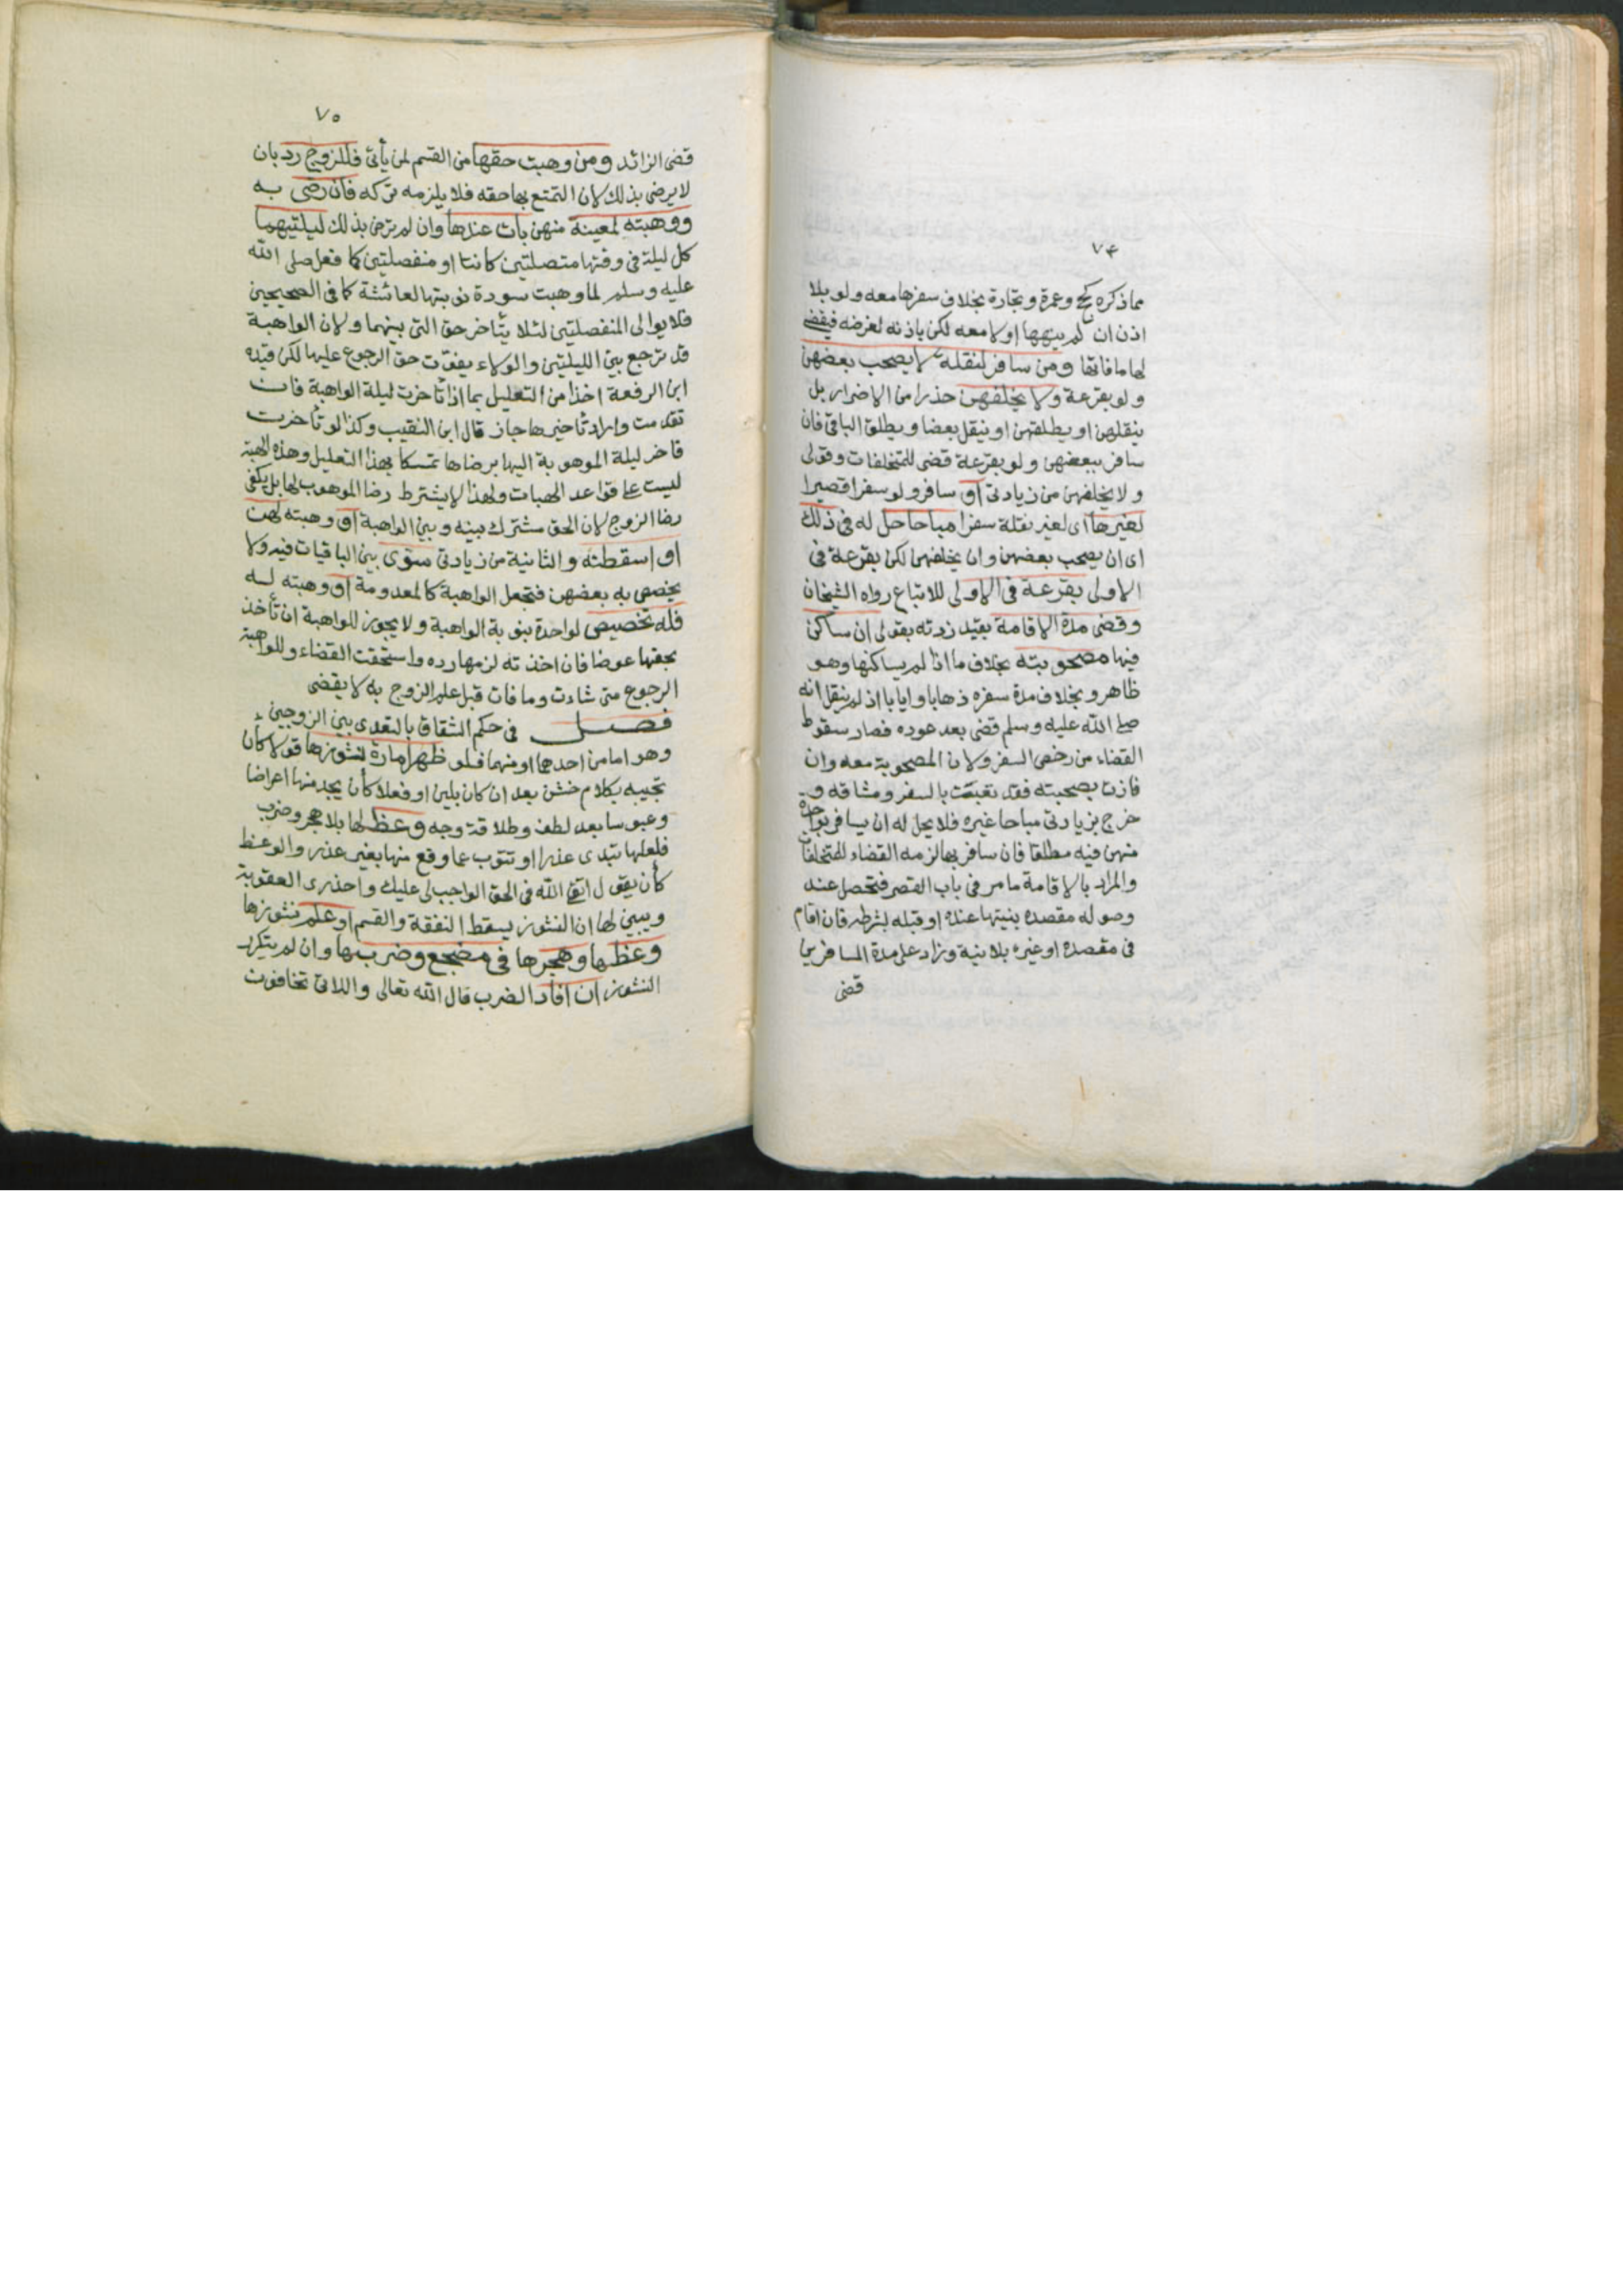 ٧٤
مما ذكره كحج وعمرة وتجارة بخلاف سفرها معه ولو بلا
اذن ان لم ينهها او لا معه لكن باذنه لغرضه فيقضي
لها ما فاتها ومن سافر لنقلة لا يصحب بعضهن
ولو بقرعة ولا يخلفهن حذرا من الاضرار بل
ينقلهن او يطلقهن او ينقل بعضا ويطلق الباقي فان
سافر ببعضهن ولو بقرعة قضى للمتخلفات وقولي
ولا يخلفهن من زيادتي او سافر ولو سفرا قصيرا
لغيرها اى لغير نقلة سفرا مباحا حل له فى ذلك
اى ان يصحب بعضهن وان يخلفهن لكن بقرعة فى
الاولى بقرعة فى الاولى للاتباع رواه الشيخان
وقضى مدة الاقامة بقيد زدته بقولى ان ساكن
فيها مصحوبته بخلاف ما اذا لم يساكنها وهو
ظاهر وبخلاف مدة سفره ذهابا وايابا اذ لم ينقل انه
صلى الله عليه وسلم قضى بعد عوده فصار سقوط
القضاء من رخص السفر ولان المصحوبة معه وان
فازت بصحبته فقد تعبت بالسفر ومشاقه و
خرج بزيادتى مباحا غيره فلا يحل له ان يسافر بواحدة
منهن فيه مطلقا فان سافر بها لزمه القضاء للمتخلفات
والمراد بالاقامة ما مر فى باب القصر فتحصل عند
وصوله مقصده بنيتها عنده او قبله بشرطه فان اقام
فى مقصده او غيره بلا نية وزاد على مدة المسافرين
قضى
٧٥
قضى الزائد ومن وهبت حقها من القسم لمن يأتى فللزوج رد بان
لا يرضى بذلك لان التمتع بها حقه فلا يلزمه تركه فان رضى به
ووهبته لمعينة منهن بات عندها وان لم ترض بذلك ليلتيهما
كل ليلة فى وقتها متصلتين كانتا او منفصلتين كما فعل صلى الله
عليه وسلم لما وهبت سودة نوبتها لعائشة كما فى الصحيحين
فلا يوالى المنفصلتين لئلا يتأخر حق التى بينهما ولان الواهبة
قد ترجع بين الليلتين والولاء يفوّت حق الرجوع عليها لكن قيده
ابن الرفعة اخذا من التعليل بما اذا تأخرت ليلة الواهبة فان
تقدمت واراد تأخيرها جاز قال ابن النقيب وكذا لو تأخرت
فأخر ليلة الموهوبة اليها برضاها تمسكا بهذا التعليل وهذه الهبة
ليست على قواعد الهبات ولهذا لا يشترط رضا الموهوب لها بل يكفى
رضا الزوج لان الحق مشترك بينه وبين الواهبة او وهبته لهن
او اسقطته والثانية من زيادتى سوّى بين الباقيات فيه ولا
يخصص به بعضهن فتجعل الواهبة كالمعدومة او وهبته له
فله تخصيص لواحدة بنوبة الواهبة ولا يجوز للواهبة ان تأخذ
بحقها عوضا فان اخذته لزمها رده واستحقت القضاء وللواهبة
الرجوع متى شاءت وما فات قبل علم الزوج به لا يقضى
فصل فى حكم الشقاق بالتعدى بين الزوجين
وهو اما من احدهما او منهما فلو ظهر امارة نشوزها قولا كأن
تجيبه بكلام خشن بعد ان كان بلين او فعلا كأن يجد منها اعراضا
وعبوسا بعد لطف وطلاقة وجه وعظ لها بلا هجر وضرب
فلعلها تبدى عذرا او تتوب عما وقع منها بغير عذر والوعظ
كأن يقول اتقى الله فى الحق الواجب لى عليك واحذرى العقوبة
ويبين لها ان النشوز يسقط النفقة والقسم او علم نشوزها
وعظها وهجرها فى مضجع وضربها وان لم يتكرر
النشوز ان افاد الضرب قال الله تعالى واللاتى تخافون